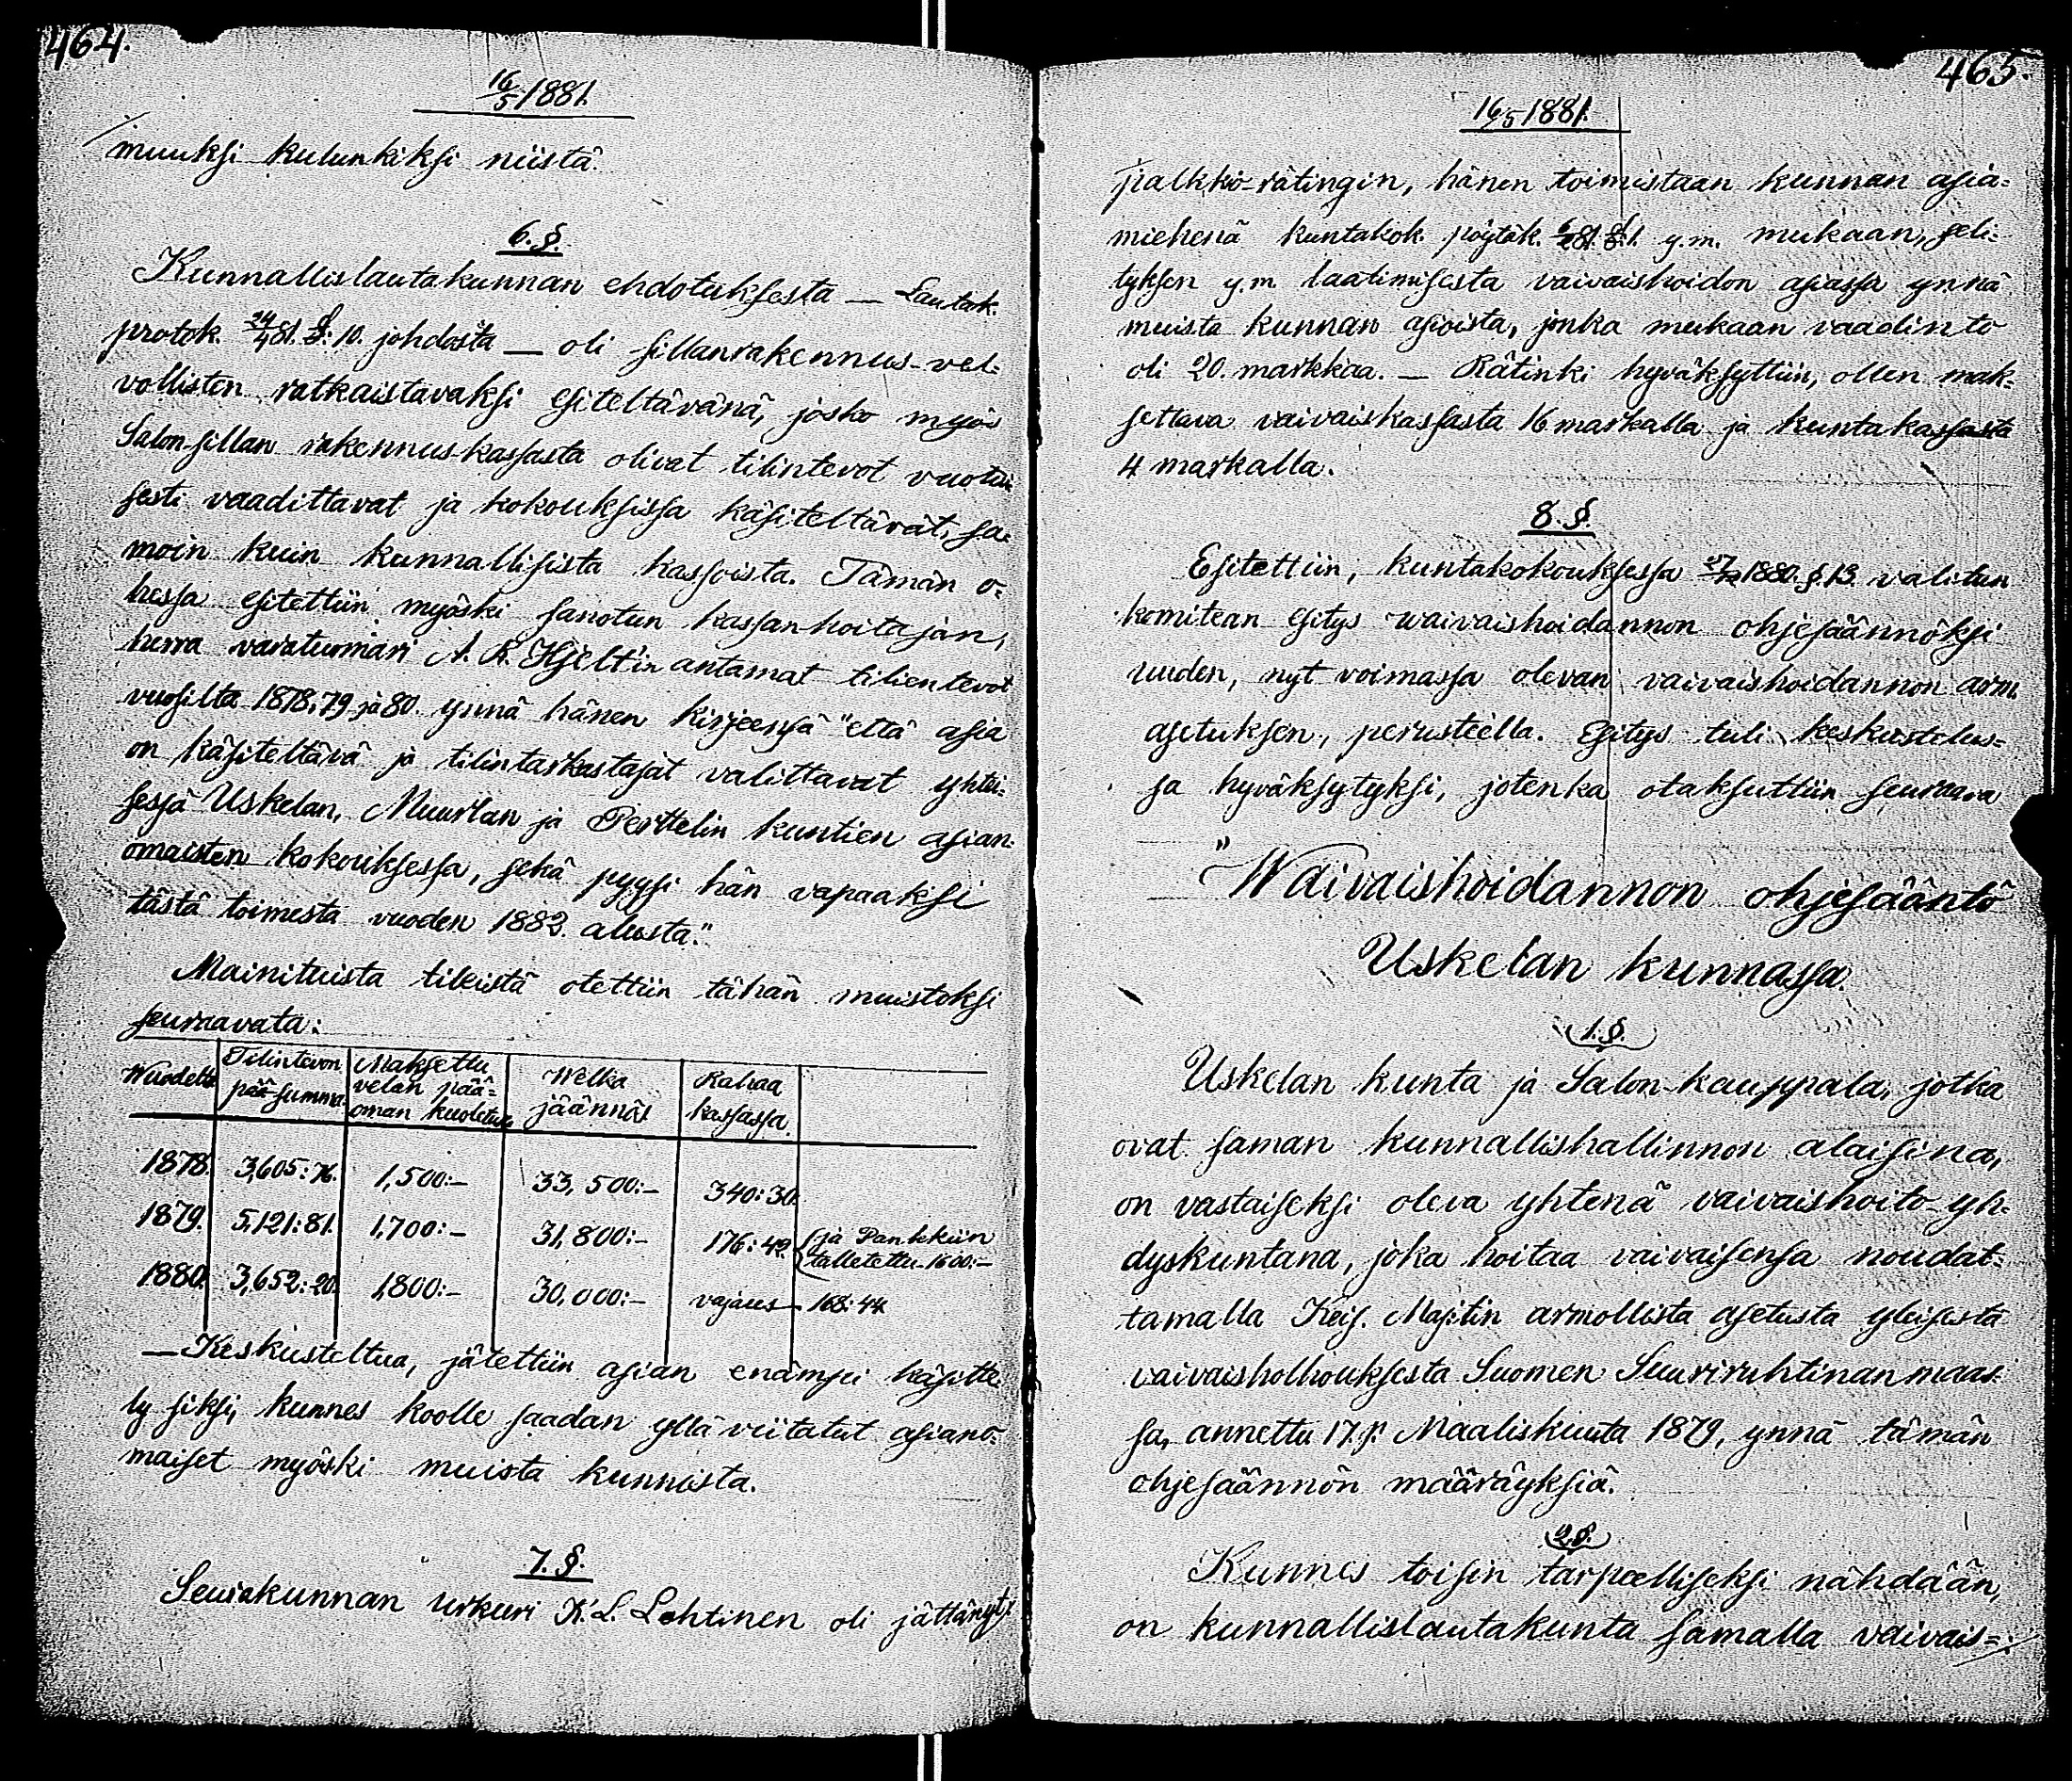 464.
16/5 1881.
muuksi kulunkiksi niistä.
6. §.
Kunnallislautakunnan ehdotuksesta — Lautak.
protok. 24/4 81. §: 10. johdosta — oli sillanrakennus-vel-
vollisten ratkaistavaksi esiteltävänä, josko myös
Salon-sillan rakennus-kassasta olivat tilintevot vuotui-
sesti vaadittavat ja kokouksissa käsiteltävät, sa-
moin kuin kunnallisista kassoista. Tämän o-
hessa esitettiin myöski sanotun kassanhoitajan,
herra varatuomari A. R. Hjelt'in antamat tilientevot
vuosilta 1878, 79 ja 80. ynnä hänen kirjeensä "että asia
on käsiteltävä ja tilintarkastajat valittavat yhtei-
sessä Uskelan, Muurlan ja Perttelin kuntien asian-
omaisten kokouksessa, sekä pyysi hän vapaaksi
tästä toimesta vuoden 1882. alusta."
Mainituista tileistä otettiin tähän muistoksi
seuraavata:
Wuodelta Tilintevon pää-summa Maksettu velan pää-oman kuoletus Welka jäännös Rahaa kassassa
1878. 3,605:76. 1,500:— 33,500:— 340:30.
1879. 5,121:81. 1,700:— 31,800:— 176:49. (ja Pankkiin talletettu 1600:—
1880. 3,652:20. 1,800:— 30,000:— vajaus — 168:44
— Keskusteltua, jätettiin asian enämpi käsitte-
ly siksi, kunnes koolle saadan yllä viitatut asiano-
maiset myöski muista kunnista.
7. §.
Seurakunnan urkuri K. L. Lehtinen oli jättänyt
465.
16/5 1881.
palkkio-rätingin, hänen toimistaan kunnan asia-
miehenä kuntakok. pöytäk. 81. §. 1. y.m. mukaan, seli-
tyksen y.m. laatimisesta vaivaishoidon asiassa ynnä
muista kunnan asioista, jonka mukaan vaadinto
oli 20. markkaa. — Rätinki hyväksyttiin, ollen mak-
settava vaivaiskassasta 16 markalla ja kuntakassasta
4 markalla.
8. §.
Esitettiin, kuntakokouksessa 1880. §. 13. valitun
komitean esitys waivaishoidannon ohjesäännöksi
uuden, nyt voimassa olevan vaivaishoidannon arm.
asetuksen, perusteella. Esitys tuli keskustelus-
sa hyväksytyksi, jotenka otaksuttiin seuraava
"Waivaishoidannon ohjesääntö
Uskelan kunnassa.
1. §.
Uskelan kunta ja Salon-kauppala, jotka
ovat saman kunnallishallinnon alaisina,
on vastaiseksi oleva yhtenä vaivaishoito-yh-
dyskuntana, joka hoitaa vaivaisensa noudat-
tamalla Keis. Maj:tin armollista asetusta yleisestä
vaivaisholhouksesta Suomen Suuriruhtinanmaas-
sa, annettu 17 p: Maaliskuuta 1879, ynnä tämän
ohjesäännön määräyksiä.
2. §.
Kunnes toisin tarpeelliseksi nähdään,
on kunnallislautakunta samalla vaivais-